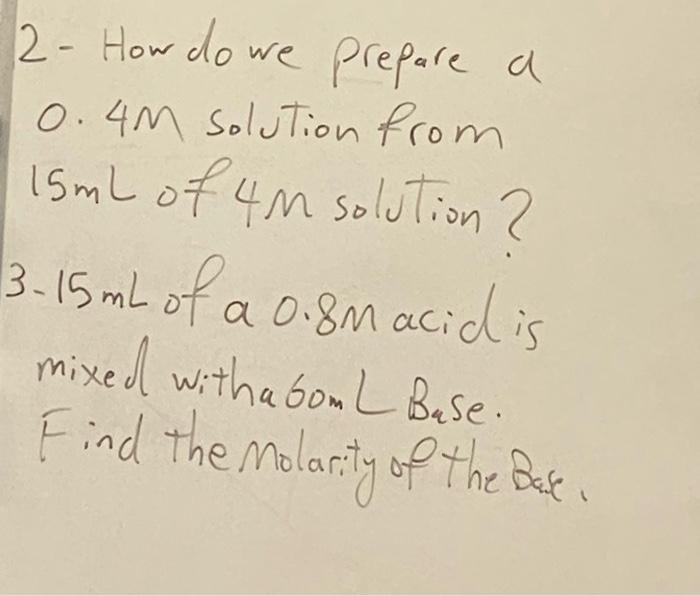 2- How do we prepare a
0.4M solution from
15mL of 4M solution?
3-15mL of a 0.8M acid is
mixed with a 60mL Base.
Find the Molarity of the Base.